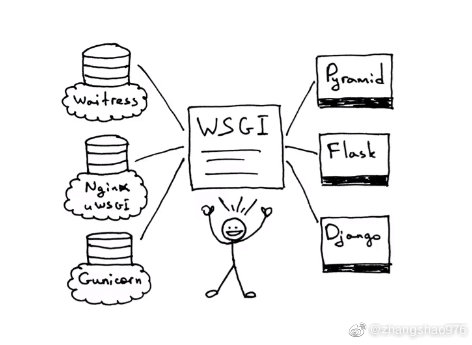 Waitress
Nginx
uWSGI
Gunicorn
WSGI
Pyramid
Flask
Django
@zhangshao976